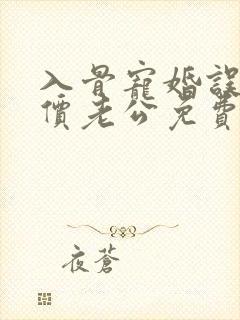 入骨寵婚誤
價老公免費
夜蒼